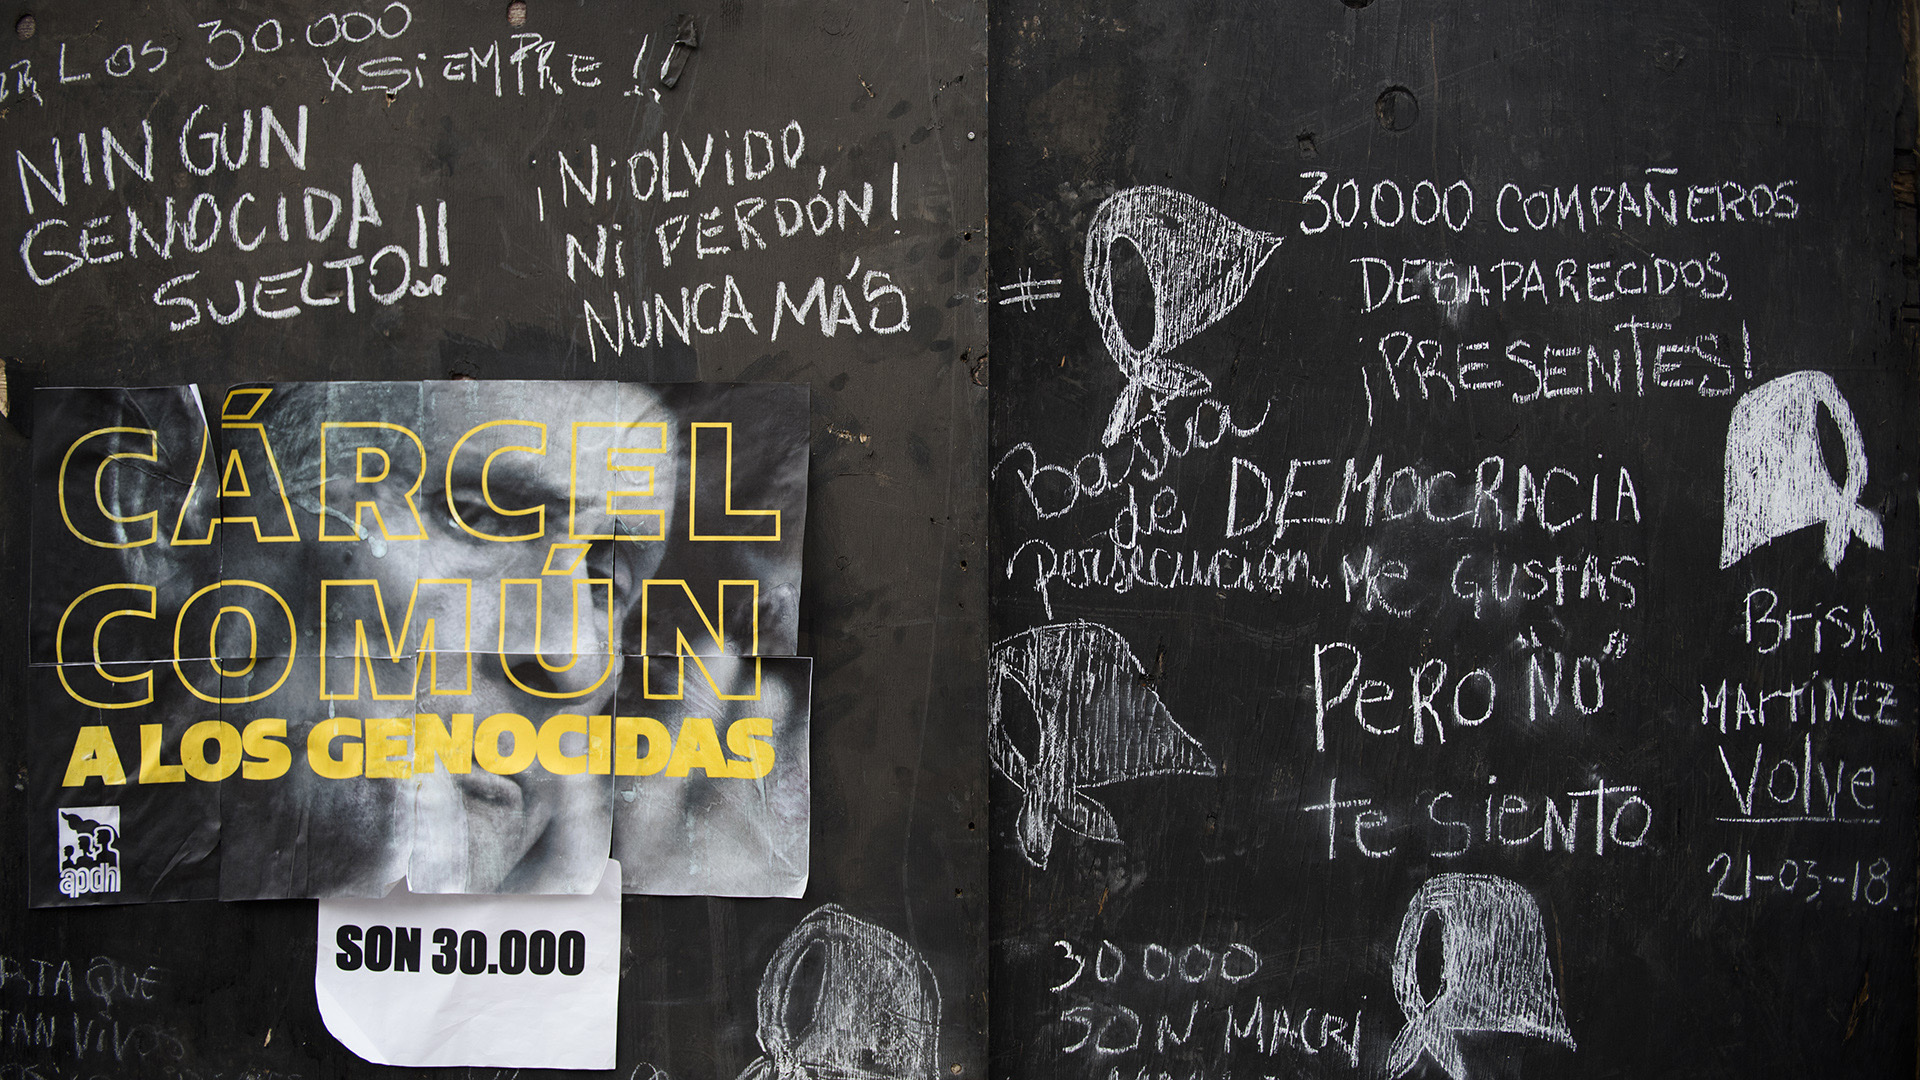 LOS 30.000
XSiEMPRE !!
NINGUN
GENOCIDA
SUELTO!!
¡Ni OLViDO,
Ni PERDÓN!
NUNCA MÁS
CÁRCEL
COMÚN
A LOS GENOCIDAS
apdh
SON 30.000
QUE
VIVOS
#
30.000 COMPAÑEROS
DESAPARECIDOS.
¡PRESENTES!
Basta
de
persecución
DEMOCRACiA
Me GUSTAS
PeRO "NO"
te SiENTO
BrisA
MARTÍNEZ
Volve
21-03-18.
30000
SON MACRi